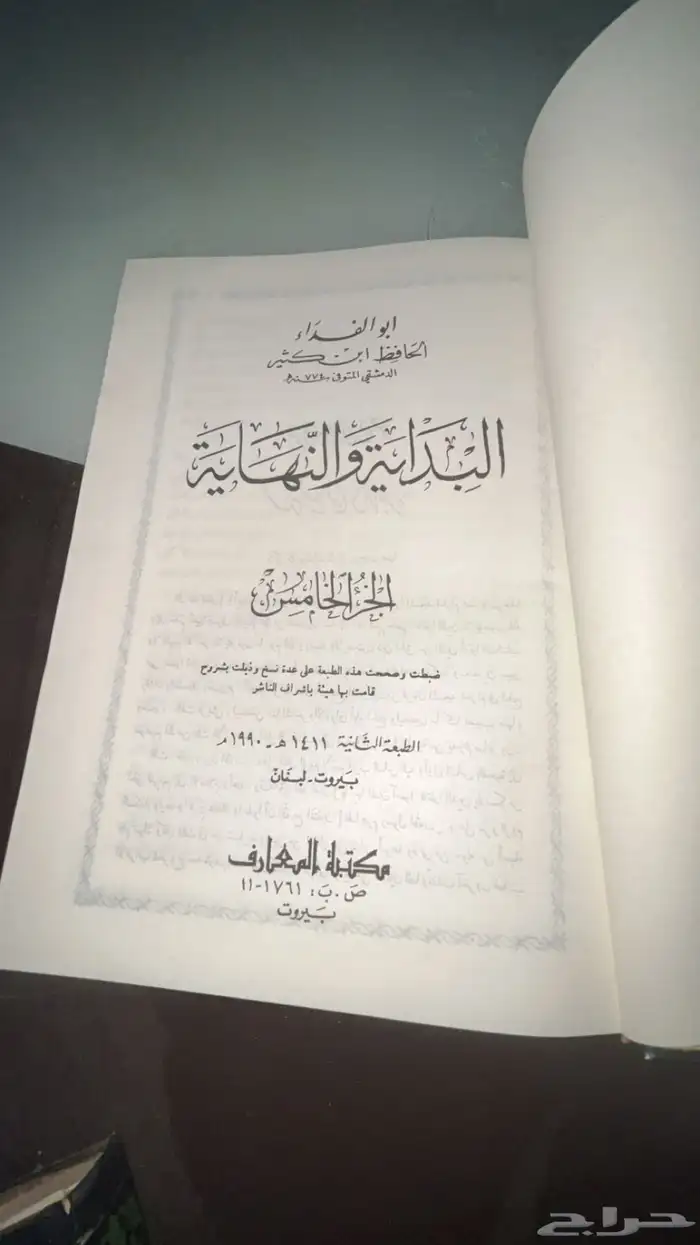 ابو الفداء
الحافظ ابن كثير
الدمشقي المتوفى ٧٧٤ هـ
البداية والنهاية
الجزء الخامس
ضبطت وصححت هذه الطبعة على عدة نسخ وذيلت بشروح
قامت بها هيئة باشراف الناشر
الطبعة الثانية ١٤١١ هـ - ١٩٩٠ م
بيروت - لبنان
مكتبة المعارف
ص . ب : ١٧٦١-١١
بيروت
حراج